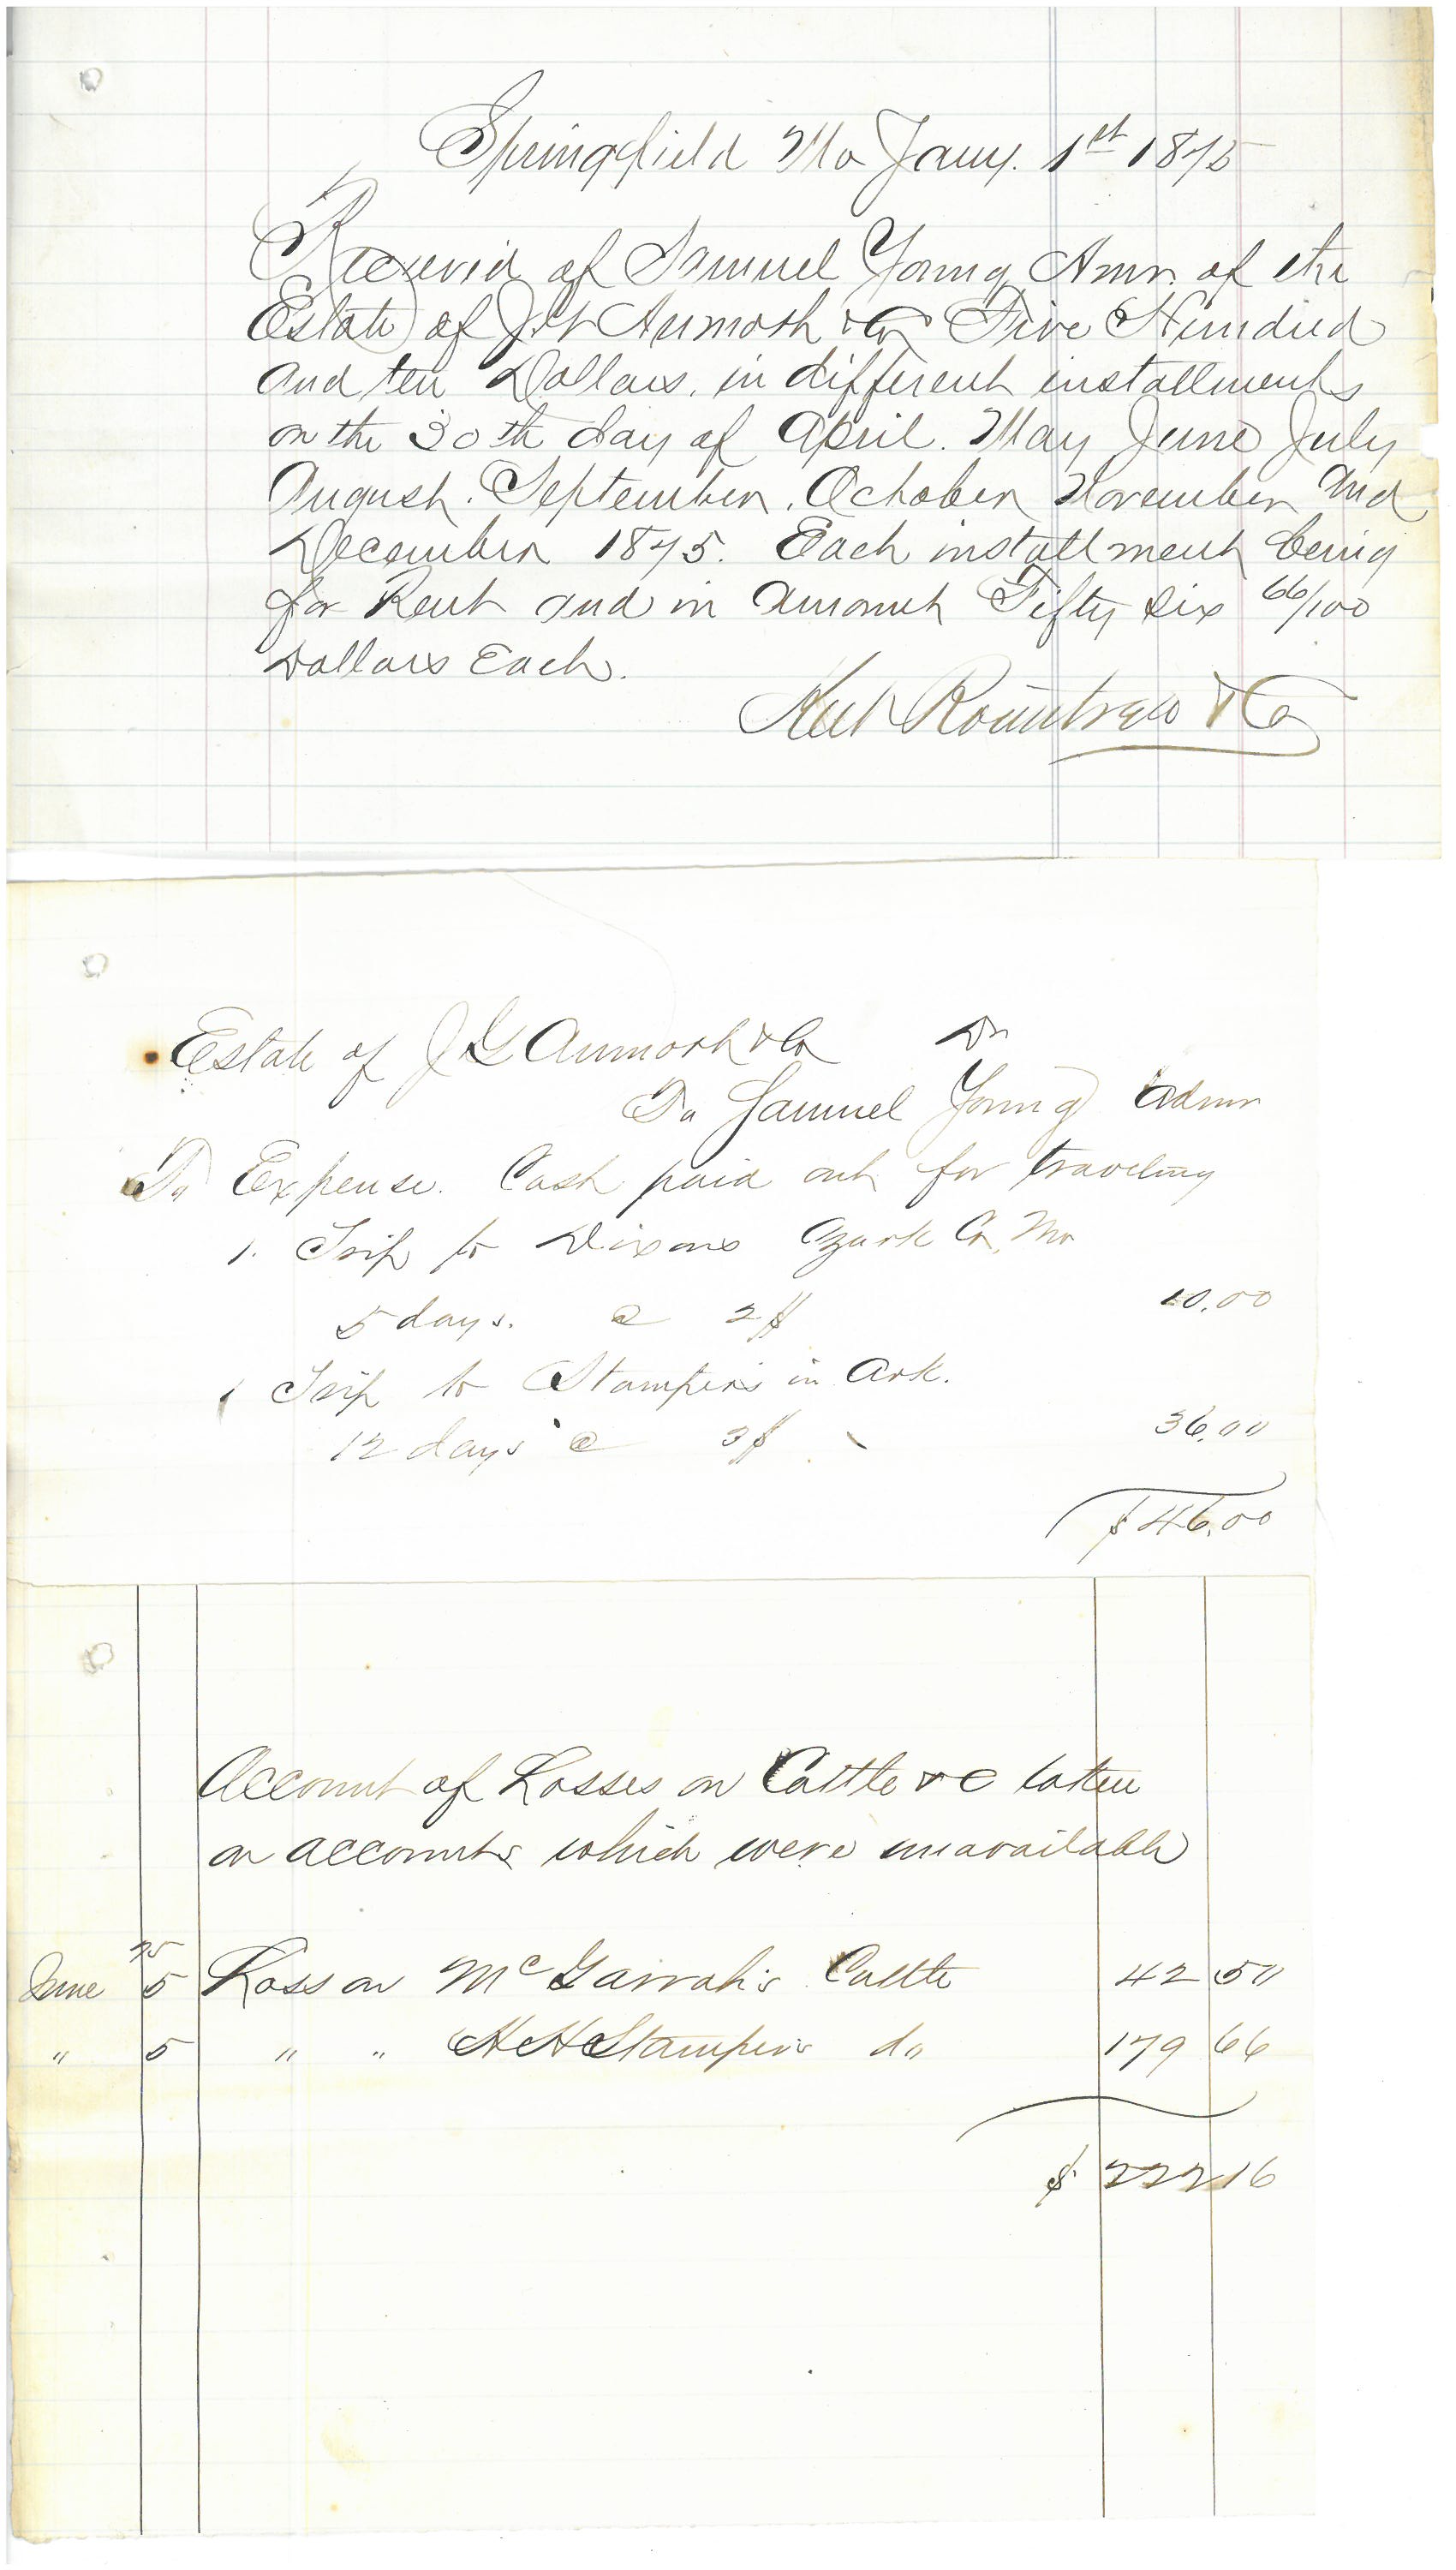 Springfield Mo Jany. 1st 1875
Received of Samuel Young Amr. of the
Estate of J.G Aumoth & Co Five Hundred
and ten Dollars. in different installments
on the 30th day of April. May June July
August. September. October November and
December 1875. Each installment being
for Rent and in amount Fifty six 66/100
Dollars Each.
Rountree & Co
Estate of J G Aumoth & Co Dr
To Samuel Young Admr
To Expense. Cash paid out for traveling
1. Trip to Dixons Ozark Co, Mo
5 days. @ 2$ 10.00
1 Trip to Stampers in Ark.
12 days @ 3$ 36.00
$46.00
Account of Losses on Cattle &c taken
on accounts which were unavailable
75
June 5 Loss on McGarrah's Cattle 42 50
" 5 " " H H Stampers do 179 66
$ 222 16